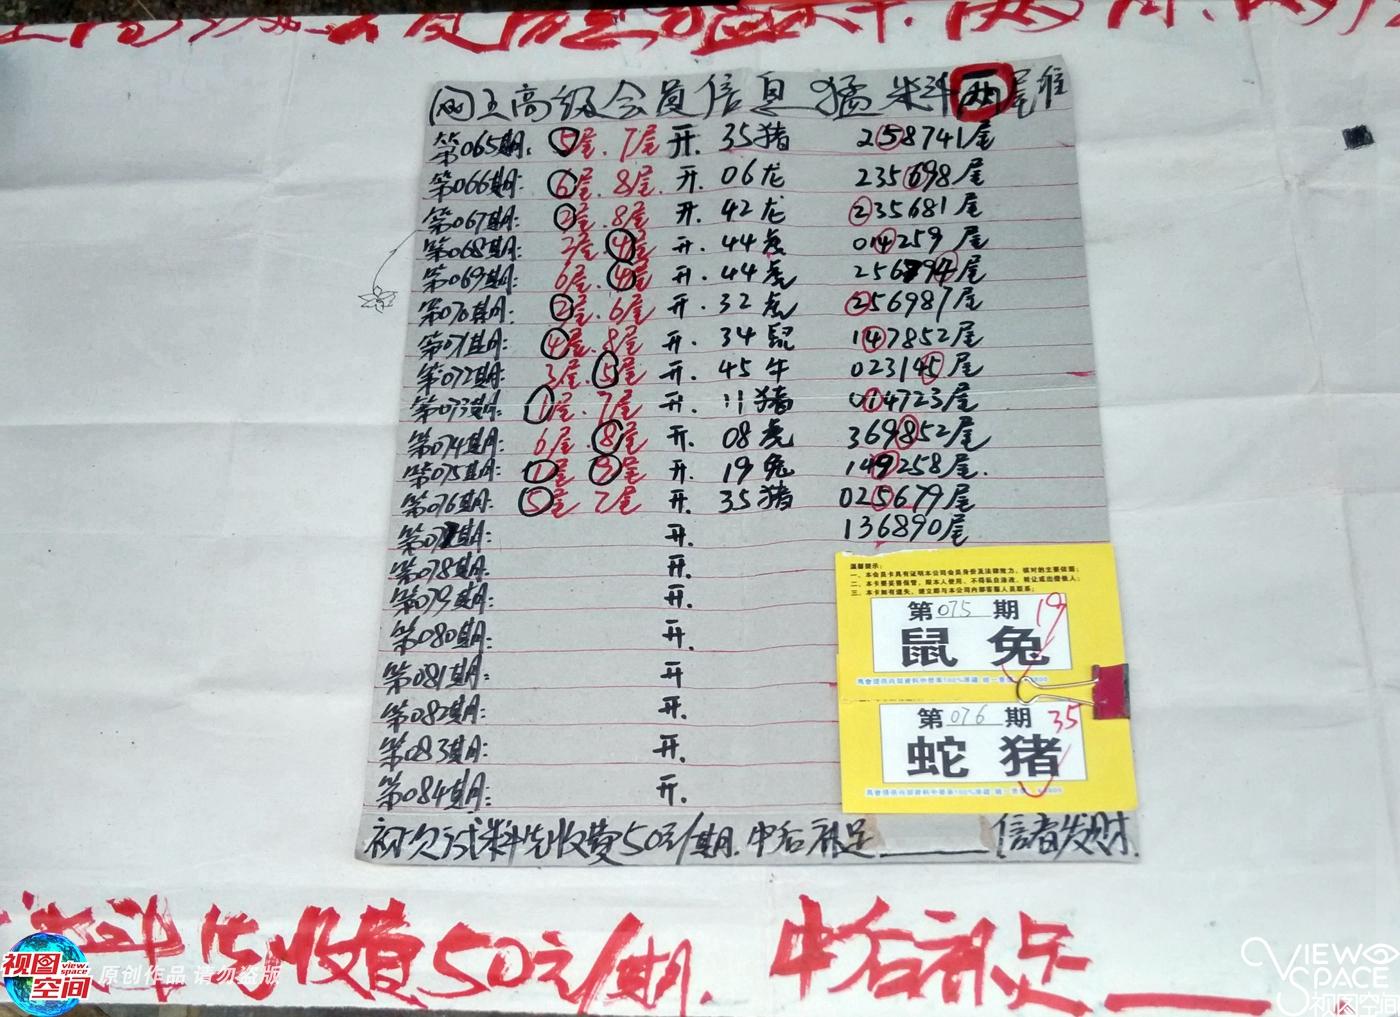 网王高级会员信息猛料两尾准
第065期: 5尾.7尾 开. 35猪 258741尾
第066期: 6尾.8尾. 开. 06龙 235698尾
第067期: 2尾.8尾 开. 42龙 235681尾
第068期: 2尾.4尾 开. 44虎 014259尾
第069期: 6尾.4尾 开. 44虎 256794尾
第070期: 2尾.6尾 开. 32虎 256987尾
第071期: 4尾.8尾 开. 34鼠 147852尾
第072期: 3尾.5尾 开. 45牛 023145尾
第073期: 1尾.7尾 开. 11猪 014723尾
第074期: 6尾.8尾 开. 08虎 369852尾
第075期: 1尾.9尾 开. 19兔 149258尾.
第076期: 5尾 7尾 开. 35猪 025679尾
第077期: 开. 136890尾
第078期: 开.
第079期: 开.
第080期: 开.
第081期: 开
第082期: 开.
第083期: 开.
第084期: 开.
温馨提示:
一、本会员卡具有证明本公司会员身份及法律效力，核对的主要依据;
二、本卡要妥善保管，限本人使用，不得私自涂改，转让或出借他人;
三、本卡如有遗失，请立即与本公司内部客服人员联系;
第075期 19
鼠 兔
第076期 35
蛇 猪
初次试料先收费50元/期.中后补足 信者发财.
料先收费50元/期. 中后补足
视图空间
view space
原创作品 请勿盗版
VIEW SPACE
视图空间